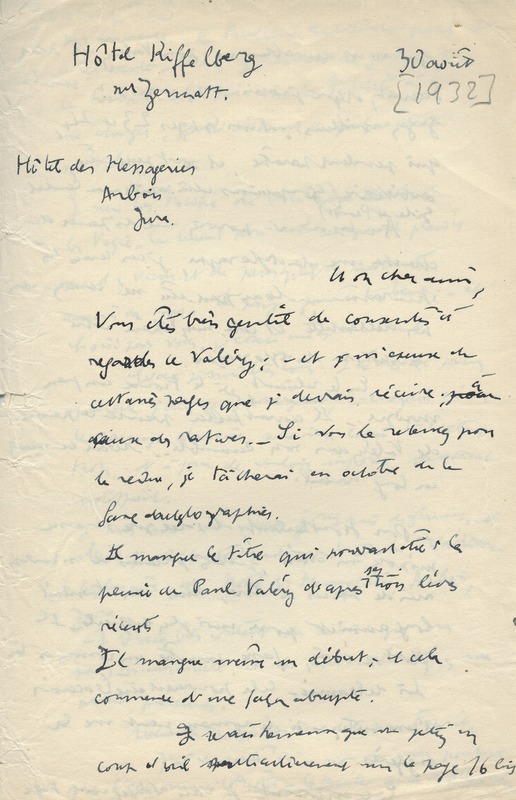 Hôtel Riffelberg
sur Zermatt.
30 août
[1932]
Hôtel des Messageries
Arbois
Jura.
Mon cher ami,
Vous êtes très gentil de consentir à
regarder ce Valéry; – et je m'excuse de
certaines pages que je devrais récrire à
cause des ratures. – Si vous le retenez pour
la revue, je tâcherai en octobre de le
faire dactylographier.
Il manque le titre qui pourrait être: la
pensée de Paul Valéry d'après ses trois livres
récents
Il manque même un début; et cela
commence d'une façon abrupte.
Je que vous jetiez un
coup d'œil particulièrement sur la page 16 bis